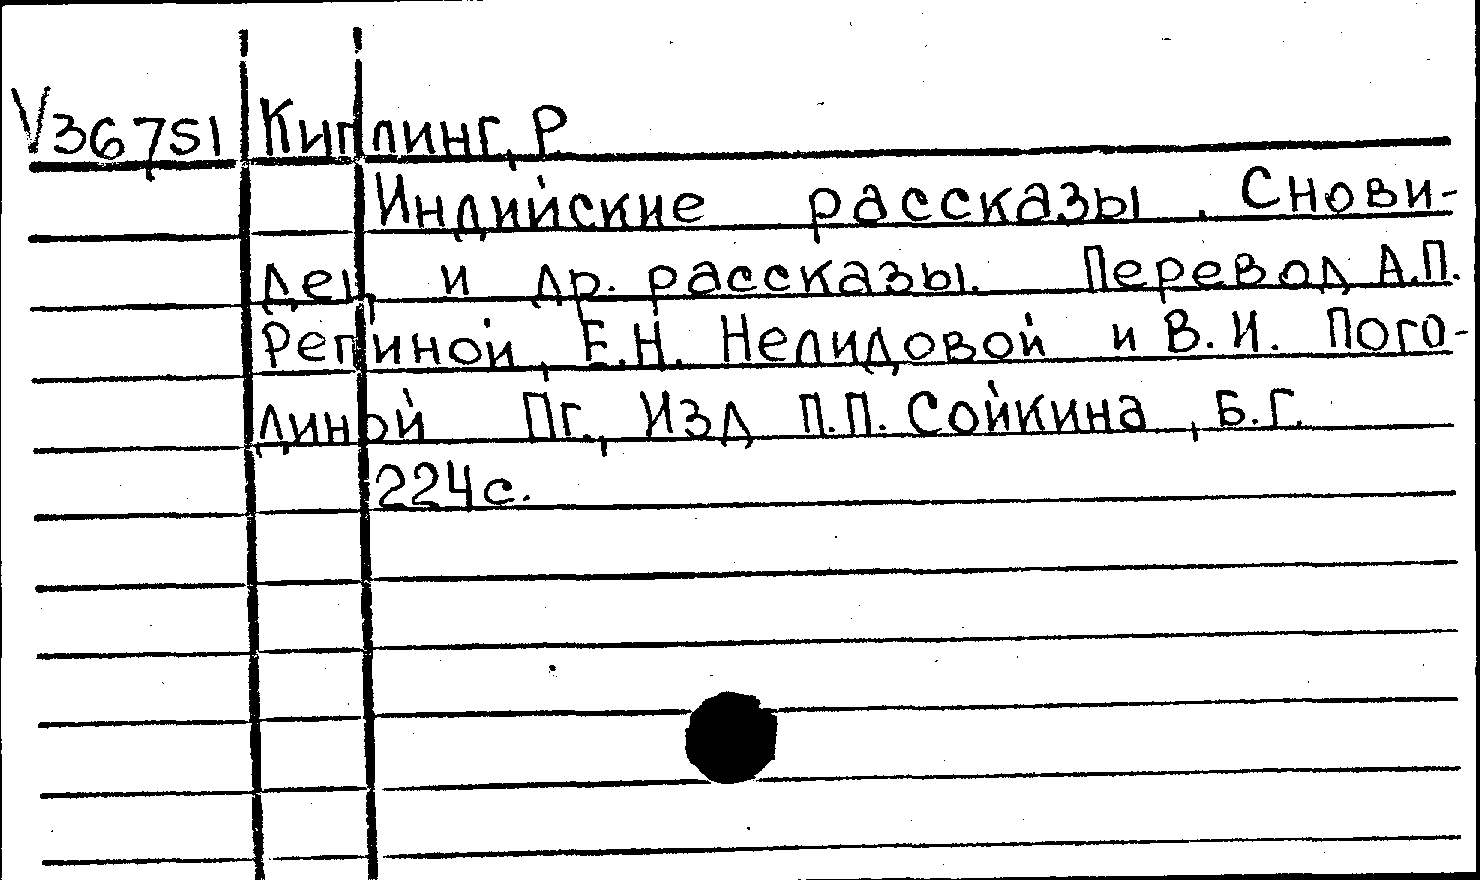 V36751 Киплинг, Р.
Индийские рассказы. Снови-
дец и др. рассказы. Перевод А.П.
Репиной, Е.Н. Нелидовой и В.И. Пого-
диной Пг., Изд П.П. Сойкина, Б.Г.
224с.